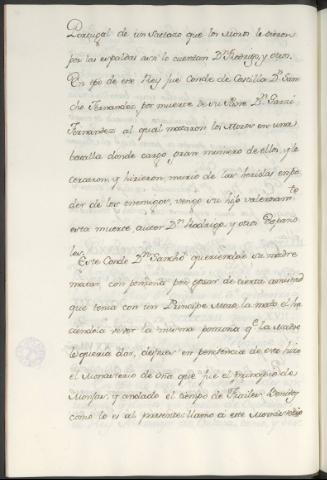 Portugal de un Saetazo que los Moros le dieron
por las espaldas asi lo cuentan Dn. Rodrigo, y otros.
En tpo de este Rey fue Conde de Castilla Dn. San
cho Fernandez por muerte de su Padre Dn. Garci
Fernandez al qual mataron los Moros en una
batalla donde cargo gran numero de ellos, y le
cercaron, y hirieron, murio de las heridas en po
der de los enemigos, vengo su hijo valerosamte
esta muerte autor Dn. Rodrigo, y otros Españo
les.
Este Conde Dn. Sancho queriendole su madre
matar con ponzoña por gozar de cierta amistad
que tenia con un Principe Moro, la mato el ha
ciendola vever la misma ponzoña qe. la Madre
le queria dar, despues en penitencia de esto hizo
el Monasterio de Oña que fue al principio de
Monjas, y andado el tiempo de Frailes Benitos
como lo es al presente llamo a este Monasterio